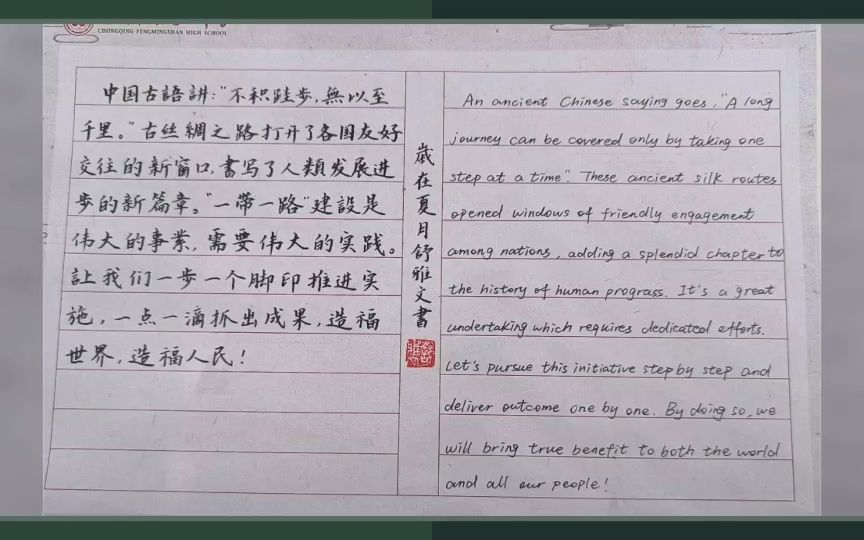 CHONGQING FENGMINGSHAN HIGH SCHOOL
中国古語讲:"不积跬步,無以至
千里。"古丝綢之路打开了各国友好
交往的新窗口,書写了人類发展进
步的新篇章。"一带一路"建設是
伟大的事業,需要伟大的实践。
让我们一步一个脚印推进实
施,一点一滴抓出成果,造福
世界,造福人民!
歲在夏月舒雅文書
An ancient Chinese saying goes, "A long
journey can be covered only by taking one
step at a time". These ancient silk routes
opened windows of friendly engagement
among nations, adding a splendid chapter to
the history of human prograss. It's a great
undertaking which requires dedicated efforts.
Let's pursue this initiative step by step and
deliver outcome one by one. By doing so, we
will bring true benefit to both the world
and all our people!